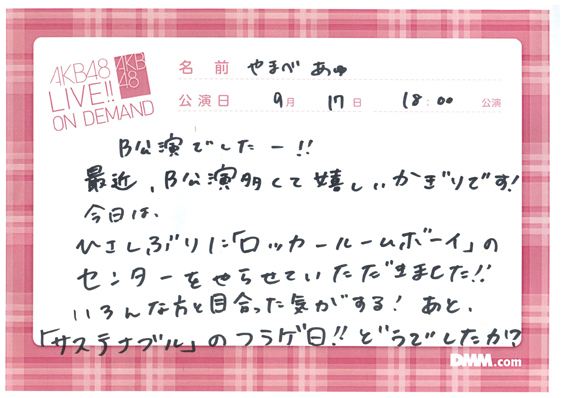 AKB48
LIVE!!
ON DEMAND
AKB
48
名 前 やまべ あゆ
公演日 9月 17日 18:00 公演
B公演でしたー!!
最近、B公演多くて嬉しいかぎりです!
今日は、
ひさしぶりに「ロッカールームボーイ」の
センターをやらせていただきました!!
いろんな方と目合った気がする! あと、
「サステナブル」のフラゲ日!! どうでしたか!?
DMM.com